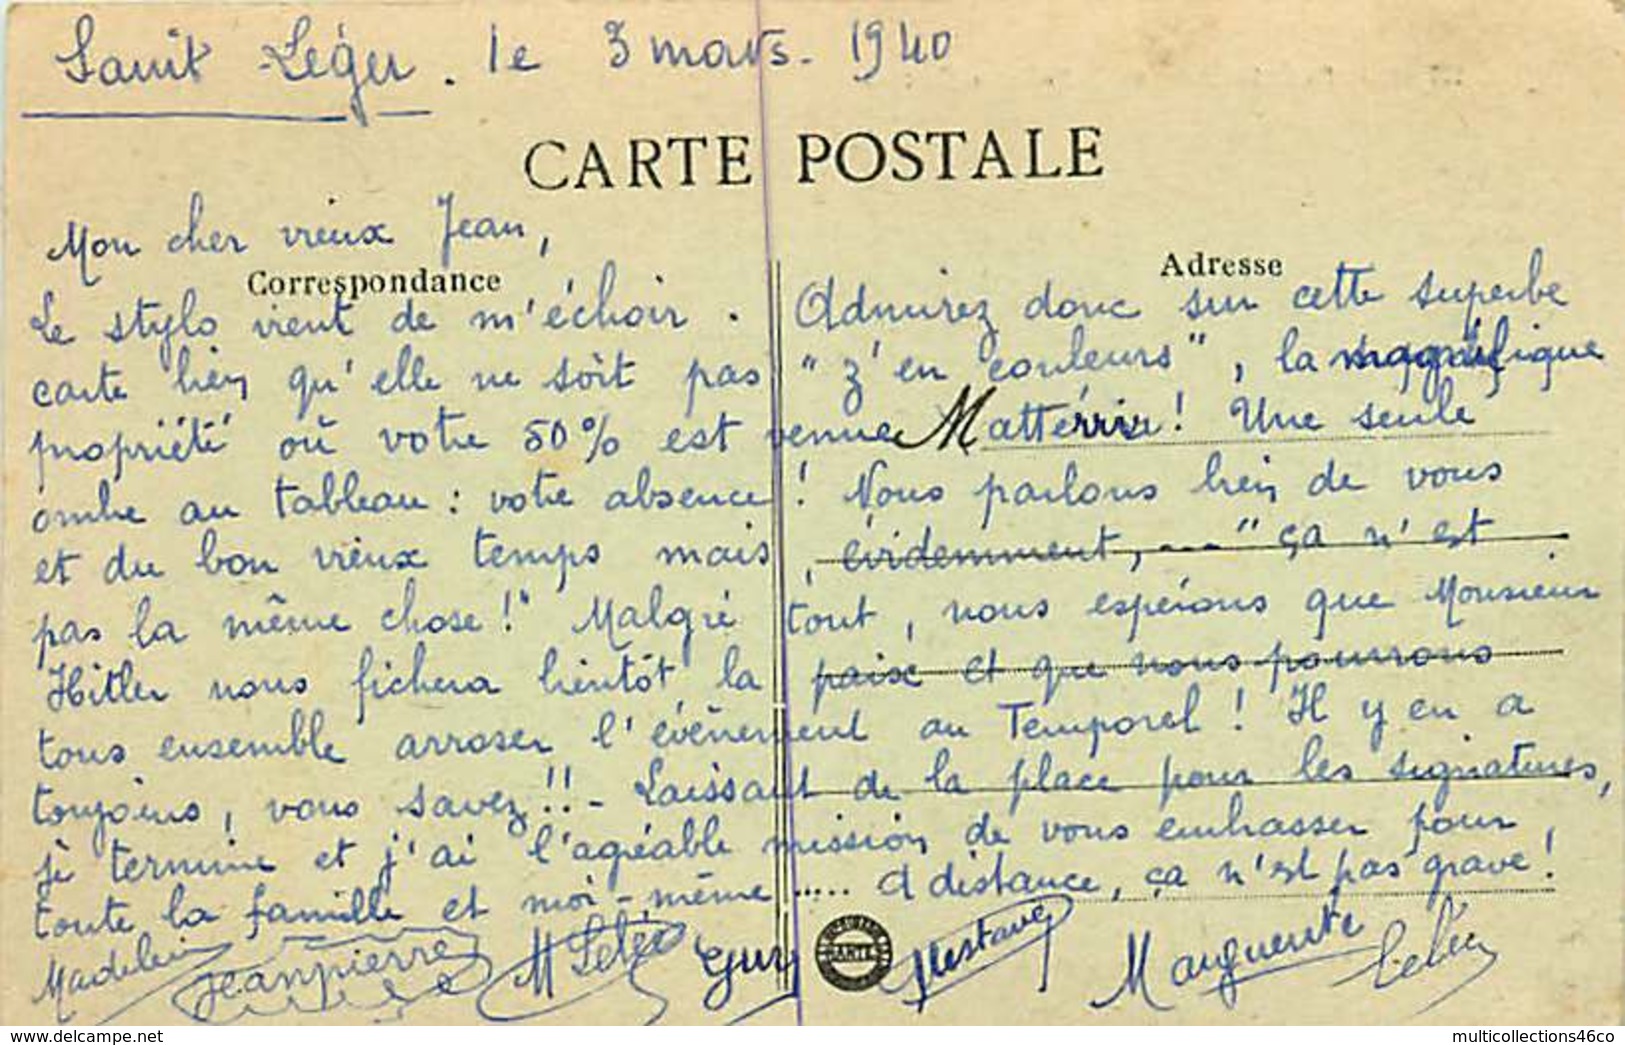 Saint Léger. le 3 mars. 1940
CARTE POSTALE
Mon cher vieux Jean,
Correspondance
Adresse
Le stylo vient de m'échoir. Admirez donc sur cette superbe
carte bien qu'elle ne soit pas "z'en couleurs", la magnifique
propriété où votre 50% est venue Mattérrir! Une seule
ombre au tableau : votre absence! Nous parlons bien de vous
et du bon vieux temps mais, évidemment, ... "ça n'est
pas la même chose!" Malgré tout, nous espérons que Monsieur
Hitler nous fichera bientôt la paix et que nous pourrons
tous ensemble arroser l'évènement au Temporel! Il y en a
toujours, vous savez!! - Laissant de la place pour les signatures,
je termine et j'ai l'agréable mission de vous embrasser pour
toute la famille et moi-même..... A distance, ça n'est pas grave!
Madeleine Jeanpierre Guy Gustave Marguerite
multicollections46.delcampe.net
multicollections46co